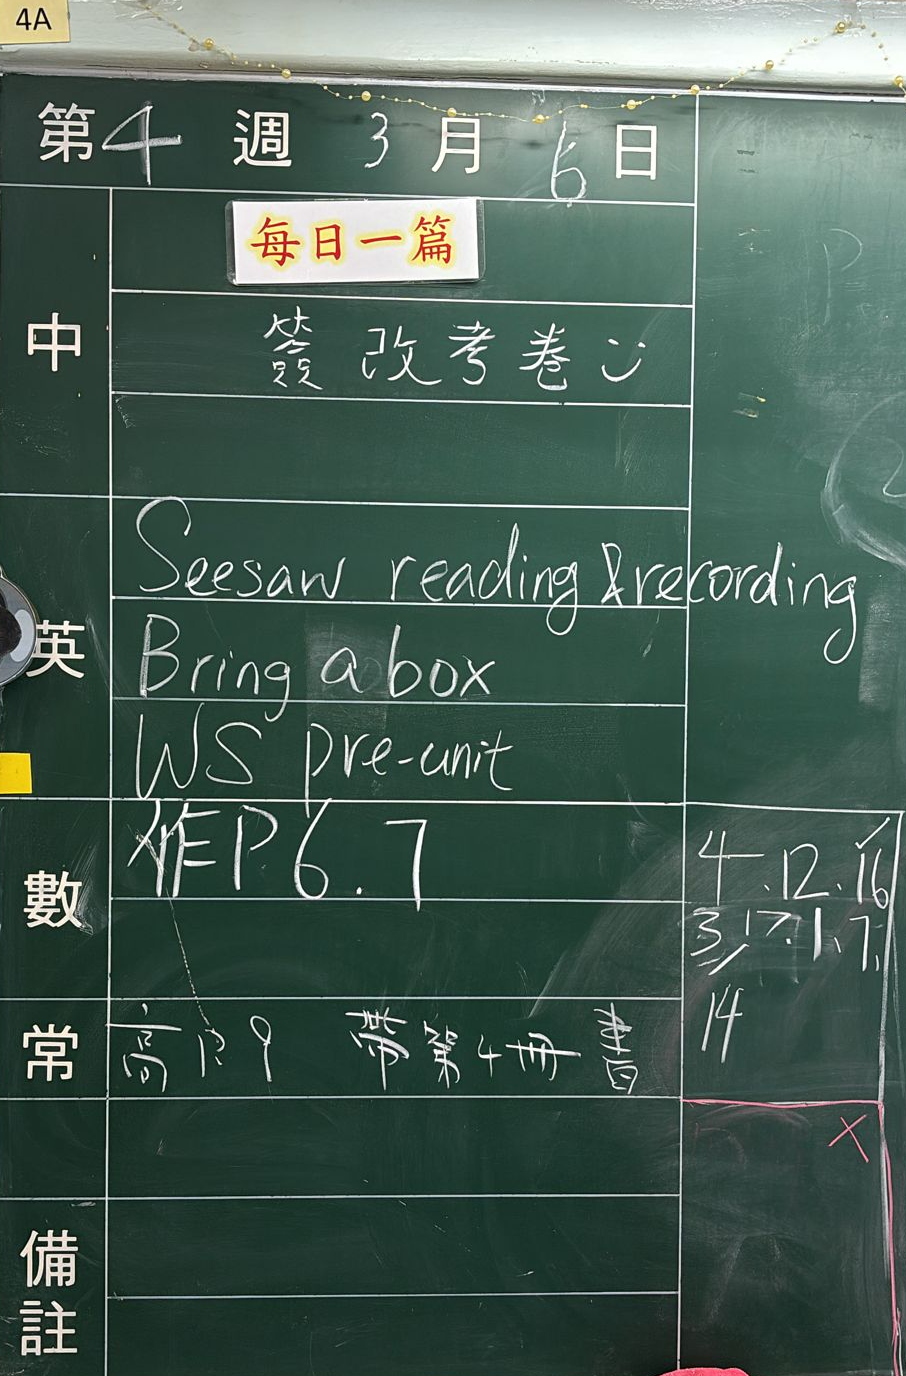 4A
第4週3月6日
中
每日一篇
簽改考卷
英
Seesaw reading & recording
Bring a box
WS pre-unit
數
作P6.7
4、12、16
3、17、1、7、
14
常
高P.9 帶第4冊書
備註